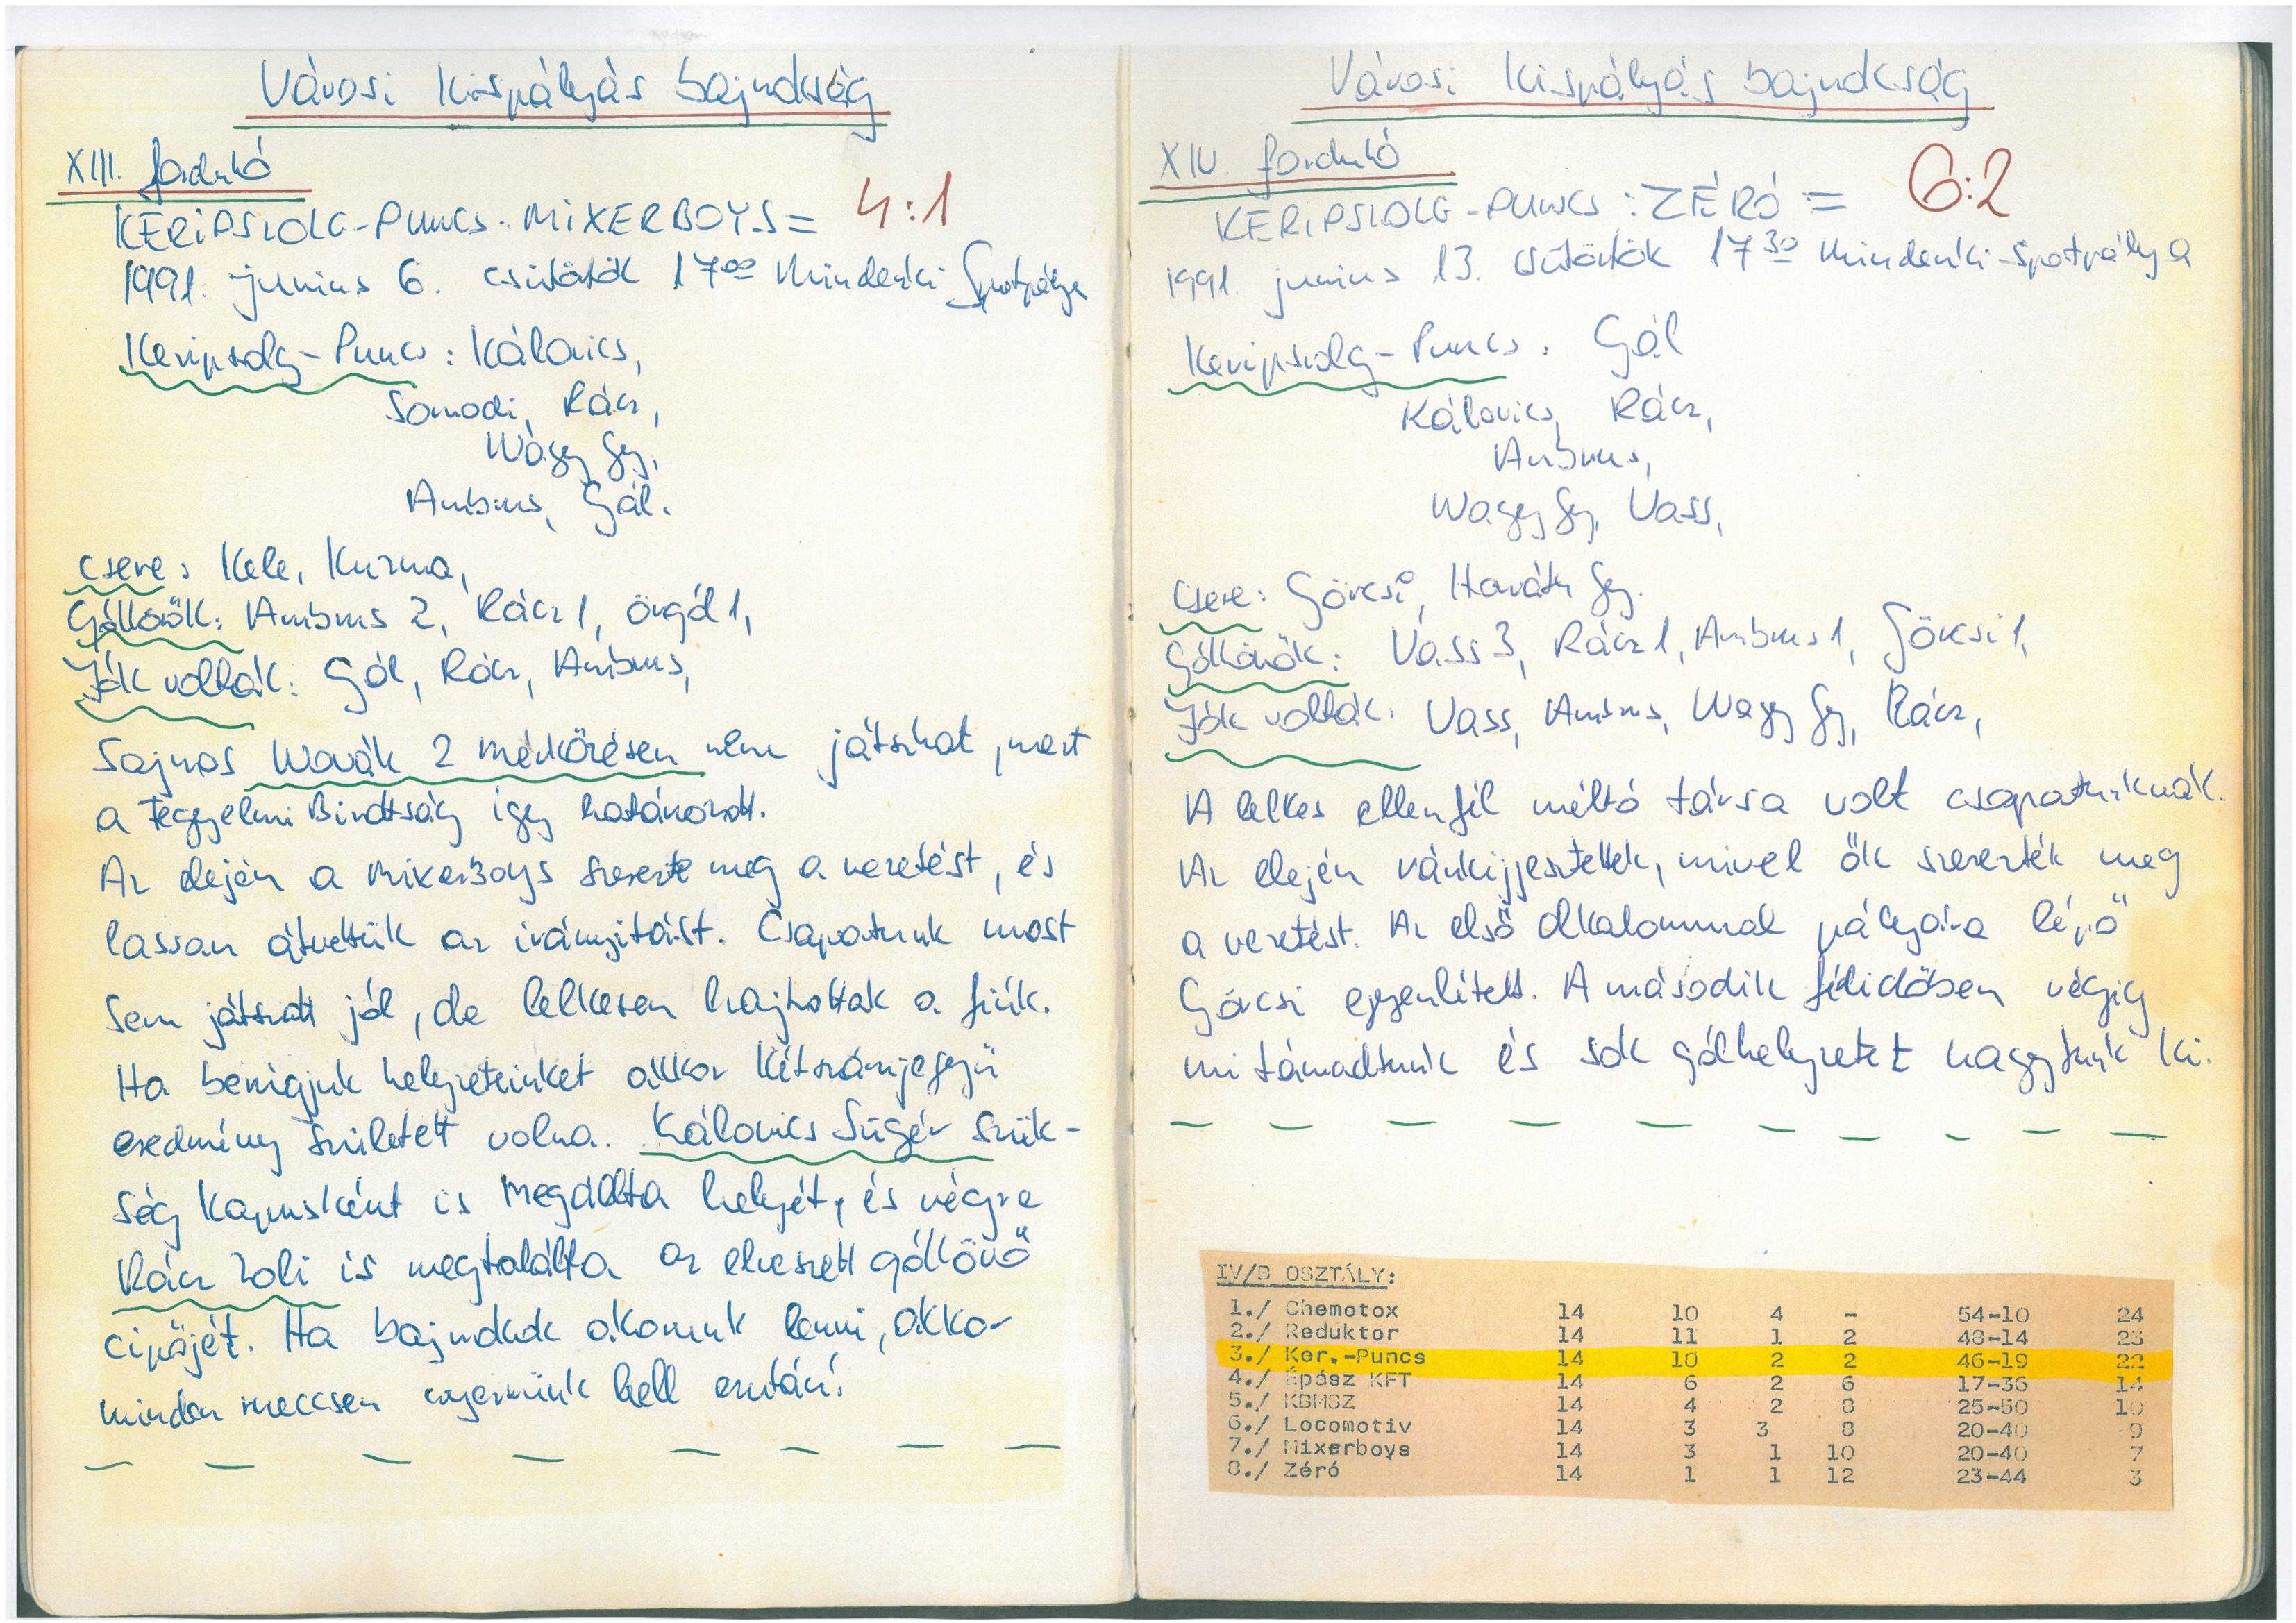 Városi Kispályás bajnokság
XIII. forduló
KERIPSZOLG-PUNCS : MIXERBOYS = 4:1
1991. junius 6. csütörtök 17⁰⁰ Mindenki Sportpálya
Keripszolg-Puncs : Kálovics,
Somodi, Rácz,
Nagy Gy,
Ambrus, Gál.
Csere: Kele, Kuzma,
Góllövők: Ambrus 2, Rácz 1, öngól 1,
Jók voltak: Gál, Rácz, Ambrus,
Sajnos Novák 2 mérkőzésen nem játszhat, mert
a Fegyelmi Bizottság igy határozott.
Az elején a MixerBoys szerezte meg a vezetést, és
lassan átvettük az irányitást. Csapatunk most
sem játszott jól, de lelkesen hajtottak a fiúk.
Ha berúgjuk helyzeteinket akkor kétszámjegyű
eredmény született volna. Kálovics Szigér szük-
ség kapusként is megállta helyét, és végre
Rácz Zoli is megtalálta az elveszett góllövő
cipőjét. Ha bajnokok akarunk lenni, akkor
minden meccsen nyernünk kell ezután!
Városi Kispályás bajnokság
XIV. forduló
KERIPSZOLG-PUNCS : ZÉRÓ = 6:2
1991. junius 13. csütörtök 17³⁰ Mindenki-Sportpálya
Keripszolg-Puncs : Gál
Kálovics, Rácz,
Ambrus,
Nagy Gy, Vass,
Csere: Göncsi, Horváth Gy.
Góllövők: Vass 3, Rácz 1, Ambrus 1, Göncsi 1,
Jók voltak: Vass, Ambrus, Nagy Gy, Rácz,
A lelkes ellenfél méltó társa volt csapatunknak.
Az elején ránkijjesztettek, mivel ők szerezték meg
a vezetést. Az első alkalommal pályára lépő
Göncsi egyenlitett. A második félidőben végig
mi támadtunk és sok gólhelyzetet hagytunk ki.
IV/B OSZTÁLY:
1./ Chemotox 14 10 4 - 54-10 24
2./ Reduktor 14 11 1 2 48-14 23
3./ Ker.-Puncs 14 10 2 2 46-19 22
4./ Épász KFT 14 6 2 6 17-36 14
5./ KBMSZ 14 4 2 8 25-50 10
6./ Locomotiv 14 3 3 8 20-40 9
7./ Mixerboys 14 3 1 10 20-40 7
8./ Zéró 14 1 1 12 23-44 3